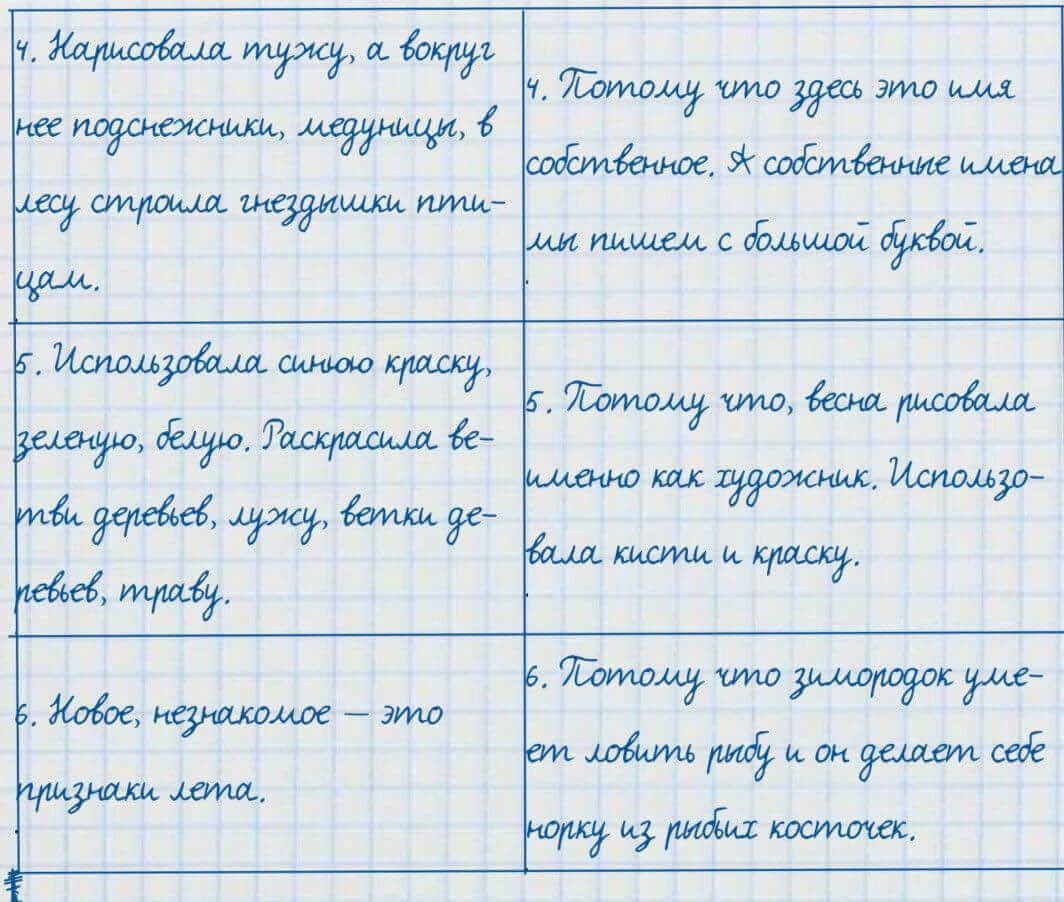 4. Нарисовала тужу, а вокруг
нее подснежники, медуницы, в
лесу строила гнездышки пти-
цам.
4. Потому что здесь это имя
собственное. А собственные имена
мы пишем с большой буквой.
5. Использовала синюю краску,
зеленую, белую. Раскрасила ве-
тви деревьев, лужу, ветки де-
ревьев, траву.
5. Потому что, весна рисовала
именно как художник. Использо-
вала кисти и краску.
6. Новое, незнакомое – это
признаки лета.
6. Потому что зимородок уме-
ет ловить рыбу и он делает себе
норку из рыбьих косточек.